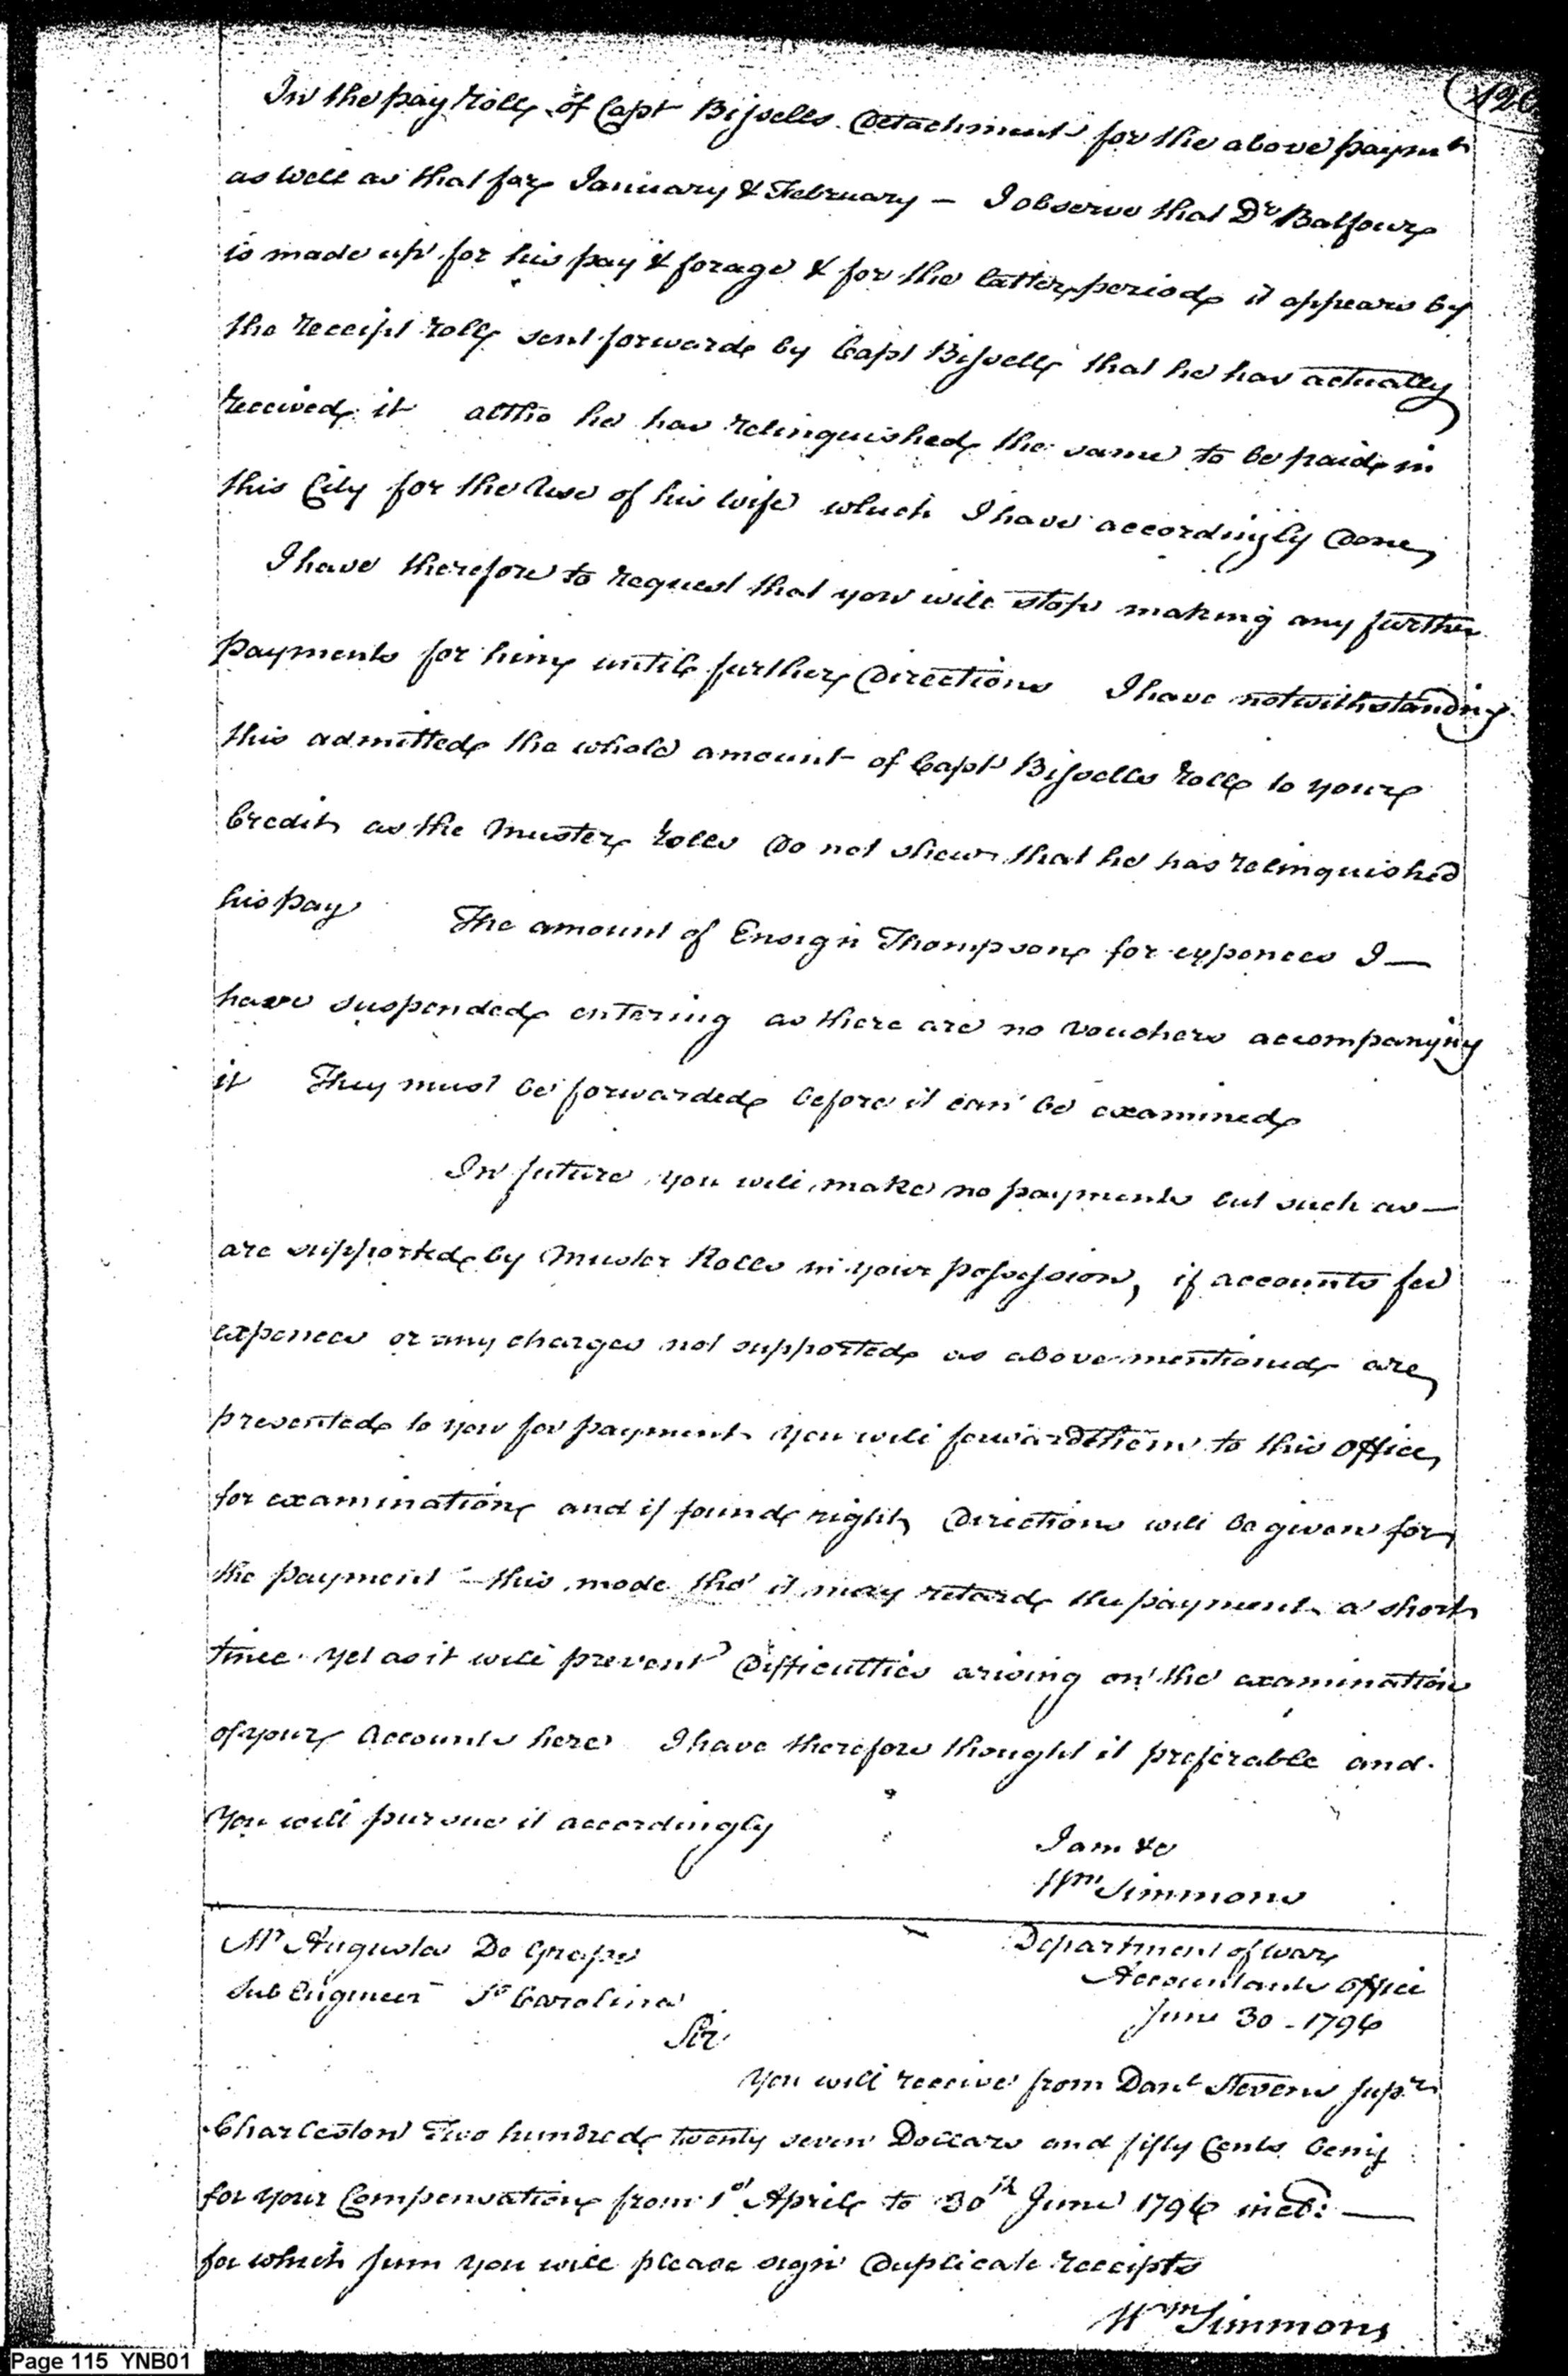 120
In the pay Roll of Capt Bissells Detachment for the above paymts
as well as that for January & February — I observe that Dr Balfour
is made up for his pay & forage & for the latter period it appears by
the receipt roll sent forward by Capt Bissell that he has actually
received it altho he has relinquished the same to be paid in
this City for the use of his wife which I have accordingly Done,
I have therefore to request that you will stop making any further
payments for him until further Directions I have notwithstanding
this admitted the whole amount of Capt Bissells roll to your
Credit as the Muster rolls Do not shew that he has relinquished
his pay The amount of Ensign Thompson for expences I —
have suspended entering as there are no vouchers accompanying
it They must be forwarded before it can be examined
In future you will make no payments but such as —
are supported by Muster Rolls in your possession, if accounts for
expences or any charges not supported as above mentioned are
presented to you for payment you will forward them to this office,
for examination and if found right Directions will be given for
the payment – this mode tho' it may retard the payment a short
time yet as it will prevent Difficulties arising on the examination
of your Accounts here I have therefore thought it preferable and
You will pursue it accordingly
I am &c
Wm Simmons
Mr Augustus De Grasse
Sub Engineer So Carolina
Department of war
Accountants office
June 30 - 1796
Sir
You will receive from Danl Stevens supr
Charleston Two hundred twenty seven Dollars and fifty Cents being
for your Compensation from 1st April to 30th June 1796 incl: —
for which sum you will please sign Duplicate receipts
Wm Simmons
Page 115 YNB01